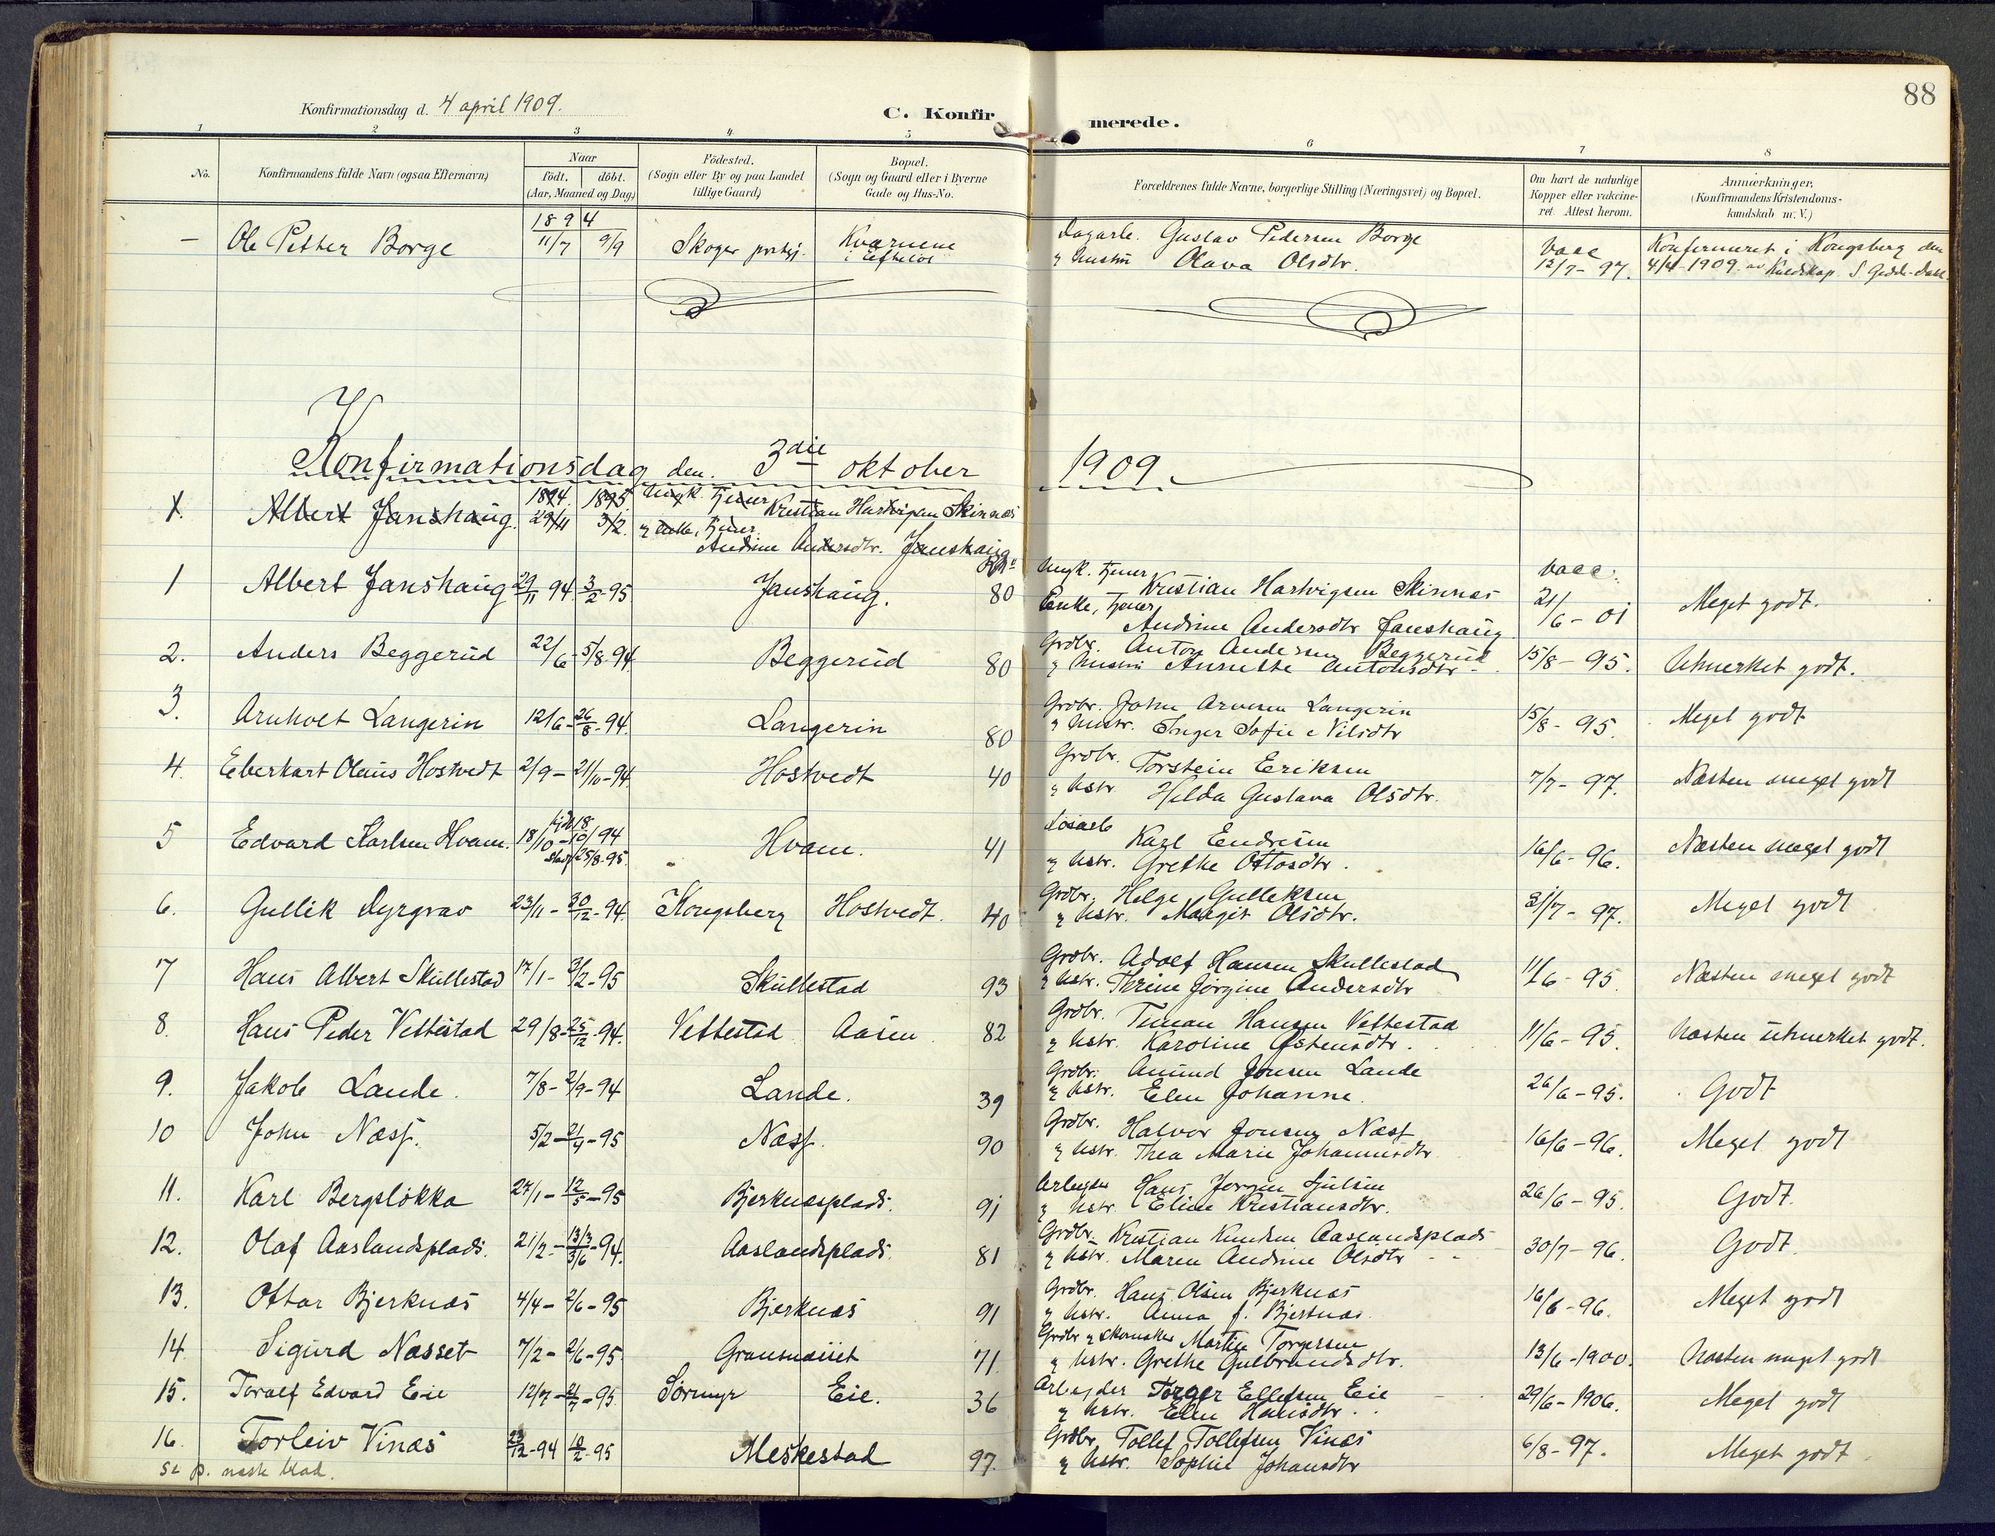 88
Konfirmationsdag d. 4 april 1909.
C. Konfirmerede.
1 2 3 4 5 6 7 8
No.
Konfirmandens fulde Navn (ogsaa Efternavn)
Naar
födt. döbt.
(Aar, Maaned og Dag)
Födested.
(Sogn eller By og paa Landet
tillige Gaard)
Bopæl.
(Sogn og Gaard eller i Byerne
Gade og Hus-No.
Forældrenes fulde Navne, borgerlige Stilling (Næringsvei) og Bopæl.
Om havt de naturlige
Kopper eller vakcine-
ret. Attest herom.
Anmærkninger.
(Konfirmandens Kristendoms-
kundskab m. V.)
1894
— Ole Petter Borge 11/7 9/9 Skoger Kværnene
i Efteløt
Dagarb. Gustav Pedersen Borge
& hustru Olava Olsdtr.
vacc
12/7-97.
Konfirmeret i Kongsberg den
4/4-1909
Konfirmationsdag den 3die oktober 1909
1. Albert Janshaug. 1894. 29/11 1895 3/2. Ungk. tjener Kristian Hartvigsen Skinnes
& Enke, tjener
Andrine Andersdtr. Janshaug
1 Albert Janshaug 29/11 94. 3/2-95 Janshaug. 80
Ungk. tjener Kristian Hartvigsen Skinnes
Enke, tjener Andrine Andersdtr Janshaug
vacc.
21/6-01 Meget godt.
2. Anders Beggerud 22/6-5/8-94 Beggerud 80
Grdbr. Anton Andersen Beggerud
& hustru Annette Antonsdtr
15/8-95. Utmerket godt.
3. Arnholt Langerin 12/6-26/8-94. Langerin 80
Grdbr. John Arvesen Langerin
& hustr. Inger Sofie Nilsdtr
15/8-95. Meget godt
4. Eberhart Olaus Hostvedt 2/9-21/10-94 Hostvedt 40
Grdbr. Torstein Eriksen
& hstr. Hilda Gustava Olsdtr.
7/7-97. Næsten meget godt
5 Edvard Karlsen Hvam. 18/10- hjdb 18/10/94
Stadf 25/8-95 Hvam. 41
Løsarb Karl Endresen
& hstr. Grethe Ottosdtr.
16/6-96. Næsten meget godt
6. Gullik Dyrgrav 23/11-30/12-94. Kongsberg Hostvedt. 40
Grdbr. Helge Gulleksen
& hstr. Margit Olsdtr.
7-97. Meget godt
7 Hans Albert Skullestad 17/1-3/2-95 Skullestad 93
Grdbr. Adolf Hansen Skullestad
& hstr. Thrine Jørgine Andersdtr
11/6-95. Næsten meget godt
8. Hans Peder Vettestad 29/8-25/12-94. Vettestad Aasen 82
Grdbr. Timan Hansen Vettestad
& hstr. Karoline Østensdtr.
11/6-95. Næsten utmerket godt.
9. Jakob Lande. 7/8-2/9-94 Lande. 39
Grdbr. Amund Jonsen Lande
& hstr. Elen Johanne.
26/6-95. Godt
10 John Næss. 5/2-21/4-95 Næss. 90
Grdbr. Halvor Jonsen Næss
& hstr. Thea Marie Johannesdtr
16/6-96. Meget godt
11. Karl Bergsløkka 27/1-12/5-95 Bjerknæsplads. 91
Arbeyder Hans Jørgen Juلsen
& hstr. Eline Kristiansdtr.
26/6-95. Godt.
12. Olaf Aaslandsplads. 21/2.-13/3 3/6-94. Aaslandsplads. 81
Grdbr. Kristian Knudsen Aaslandsplads
& hstr. Maren Andrine Olsdtr
30/7-96. Godt.
13. Ottar Bjerknæs 4/4-2/6-95 Bjerknæs 91
Grdbr. Hans Olsen Bjerknæs
& hstr. Anna J. Bjerknæs.
16/6-96. Meget godt
14. Sigurd Næsset 7/2-2/6-95 71.
Grdbr & skomaker Martin Torgersen
& hstr. Grethe Gulbrandsdtr.
13/6-1900. Næsten meget godt
15. Toralf Edvard Eie 12/7-21/7-95. Sørmyr Eie. 36
Arbejder Torger Ellefsen Eie
& hstr. Elen Hansdtr.
29/6-1906. Meget godt
16. Torleiv Vinæs 23/12-94 10/2-95 Meskestad 97.
Grdbr. Tollef Tollefsen Vinæs
& hstr. Sophie Johansdtr
6/8-97. Meget godt
Se p. næste blad.